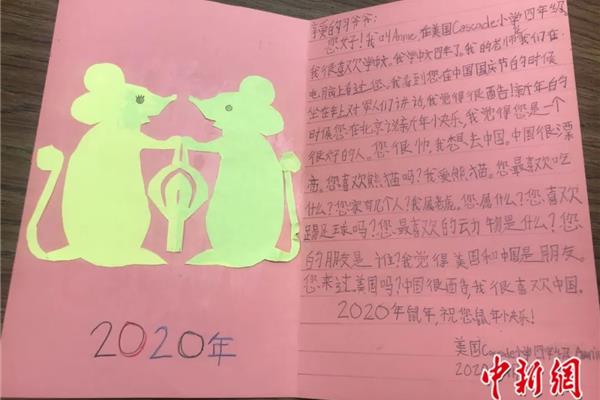 2020年
亲爱的习爷爷:
您好!我叫Annie,在美国Cascade小学四年级,
我很喜欢学中文,我学中文四年了。我的老师和我们在
电脑上看过您。我看到您在中国国庆节的时候
坐在车上对军人们讲话,我觉得很酷!新年的
时候您在北京说新年快乐,我觉得您是一个
很好的人。您很帅。我想去中国。中国很漂
亮。您喜欢熊猫吗?我爱熊猫。您最喜欢吃
什么?您家有几个人?我属老虎。您属什么?您喜欢
踢足球吗?您最喜欢的动物是什么?您
的朋友是谁?我觉得美国和中国是朋友。
您来过美国吗?中国很酷,我很喜欢中国。
2020年鼠年,祝您鼠年快乐!
美国Cascade小学四年级 Annie
2020
中新網